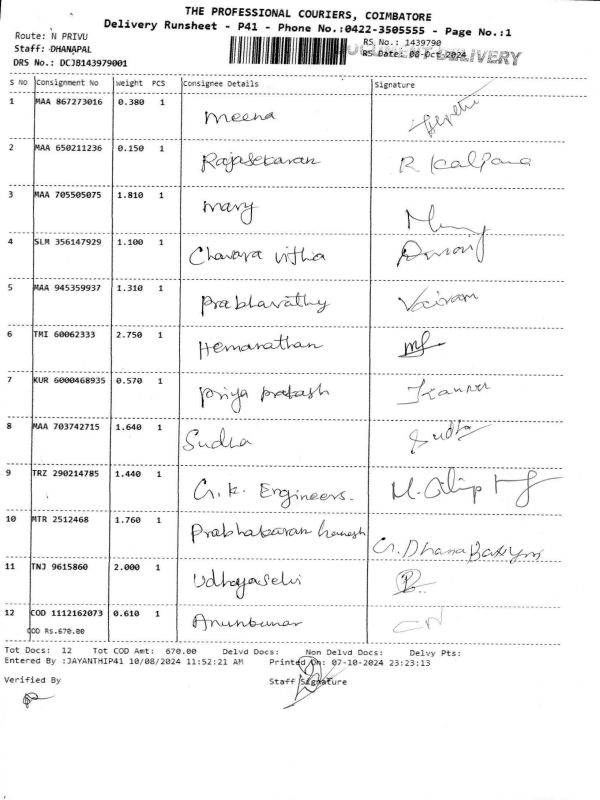 THE PROFESSIONAL COURIERS, COIMBATORE
Delivery Runsheet - P41 - Phone No.:0422-3505555 - Page No.:1
Route: N PRIVU
RS No.: 1439790
Staff: DHANAPAL
RS Date: 08-Oct-2024
DELIVERY
DRS No.: DCJB143979001
S NO Consignment No Weight PCS Consignee Details Signature
1 MAA 867273016 0.380 1 meena
2 MAA 650211236 0.150 1 Rajasekaran R. Kalpana
3 MAA 705505075 1.810 1 mary
4 SLM 356147929 1.100 1 Chavara vitha
5 MAA 945359937 1.310 1 prabhavathy Vairam
6 TMI 60062333 2.750 1 Hemanathan
7 KUR 6000468935 0.570 1 priya prakash
8 MAA 703742715 1.640 1 Sudha Sudha
9 TRZ 290214785 1.440 1 G.K. Engineers.
10 MTR 2512468 1.760 1 Prabhakaran
11 TNJ 9615860 2.000 1 Udhayaselvi
12 COD 1112162073 0.610 1 Arunkumar
COD Rs.670.00
Tot Docs: 12 Tot COD Amt: 670.00 Delvd Docs: Non Delvd Docs: Delvy Pts:
Entered By :JAYANTHIP41 10/08/2024 11:52:21 AM Printed On: 07-10-2024 23:23:13
Verified By Staff Signature